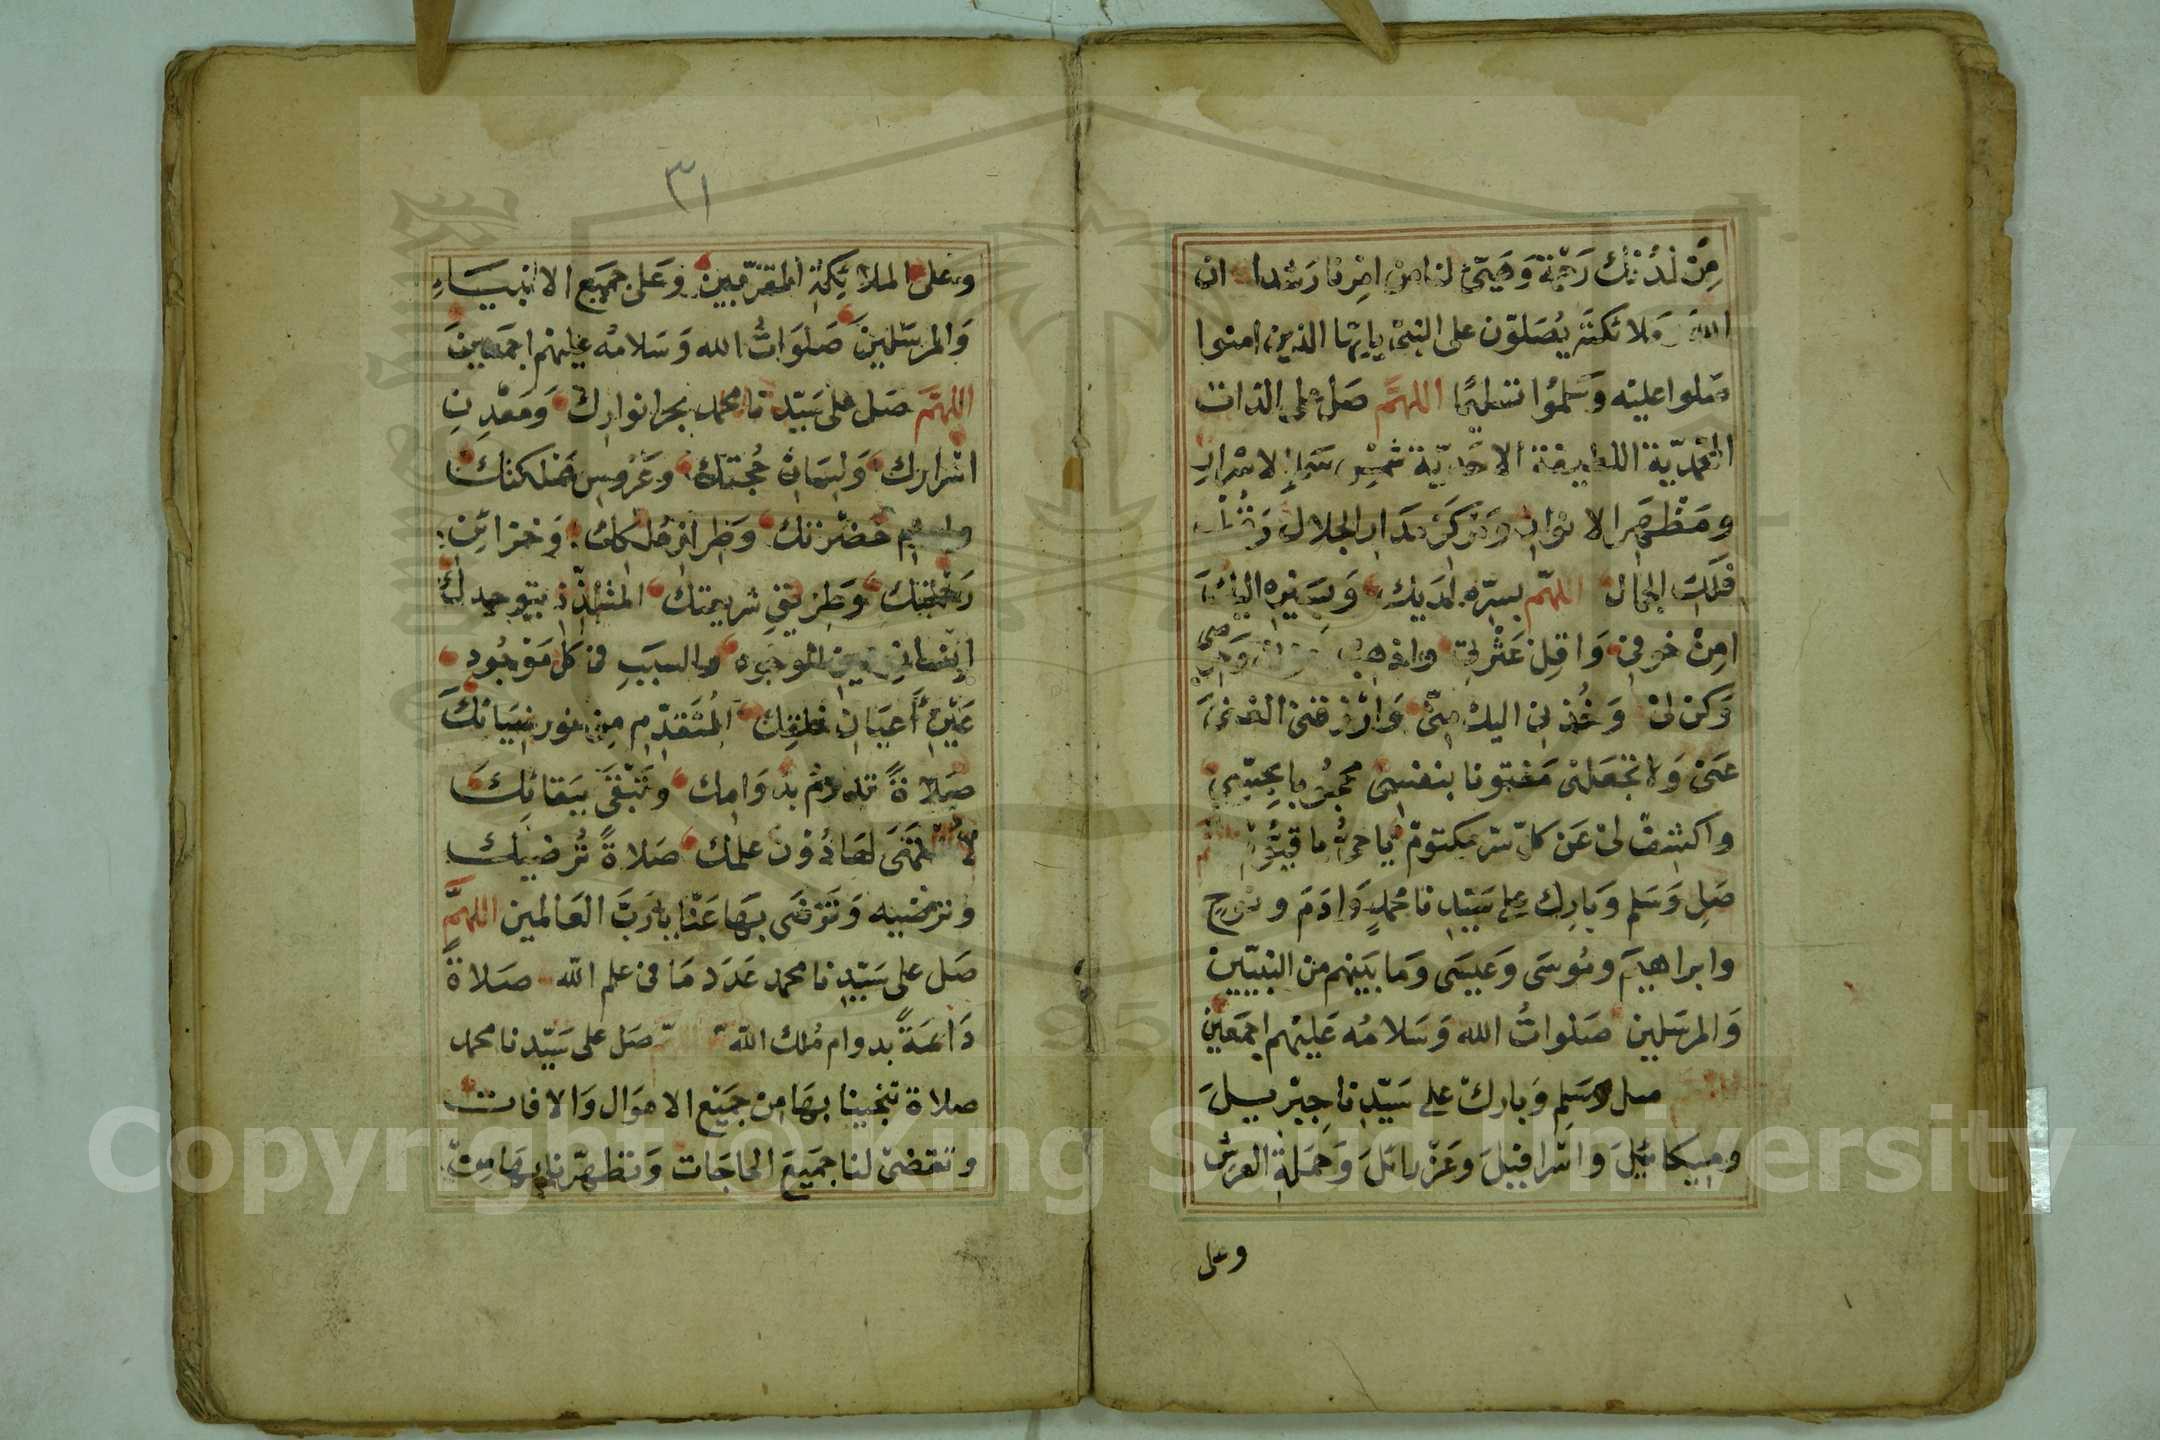 مِنْ لَدُنْكَ رَحْمَةً وَهَيِّئْ لنا مِنْ امْرِنا رَشَدا ان
الله وَملائكتَه يُصَلّون على النبىْ يا ايّها الذين امنوا
صَلوا عليْه وَسَلِّمُوا تسْليمًا اللهمَّ صَلّ على الذات
المحمّديّة اللطيفة الاحَديّة شمْسِ سَمَاءِ الاسْرارِ
ومَظْهَرِ الانوَار وَمَرْكَز مَدَارِ الجلال وَقُطْبِ
فَلَكِ الجمال اللهمّ بسِرّه لدَيك وَبِسَيْرِه اليْكَ
امِنْ خوفي وَاقِلْ عَثْرتى واذهِب حزنى وَحِرْصى
وَكن لىْ وَخُذنى اليك مِنّى وَارْزقنى الفنَاءَ
عَنى وَلا تجْعَلنى مَفتونا بنفسِى محجُوبا بِحِسّى
واكشِفْ لىْ عَن كلّ سّر مكتومْ يا حىُّ يا قيُّوْم
صَلِ وَسَلم وَبارِك على سَيّدِنا محمدٍ وَادَمَ ونوحٍ
وابراهيْمَ ومُوسَى وَعيسَى وَما بَينهم من النبيّينْ
وَالمرسَلين صَلواتُ الله وَسَلامُه عَليْهم اجمَعينْ
صل وَسَلِم وَبارك على سَيّدِنا جبْريلَ
وميكائيلَ وَاسْرافيلَ وعَزْرائلَ وَحَمَلةِ العرشْ
وعلى
٣١
وَعَلى الملائِكةِ المقرّبينْ وَعَلى جمَيع الانبيَاءِ
وَالمرسَلينَ صَلَوَاتُ الله وَسَلامُه عليْهم اجمَعينَ
اللهمَّ صَل على سَيّدنا محمد بحر انوارِك وَمَعْدِنِ
اسْرارك وَلِسَانِ حُجتك وَعَرُوسِ مَمْلكتك
وامام حَضْرَتك وَطِرَازِ مُلكك وَخزائن
رَحْمَتِك وَطريْقِ شريعتك المتلَذّذ بتوحيدك
انسَانِ عين الوجُود والسبَبِ فى كل مَوْجُودِ
عَيْنِ أعيَانِ خلقِك المُتَقدّم مِن نور ضِيَائكَ
صَلَاةً تدومُ بدَوَامِك وَتَبْقَى ببَقائك
لا مُنْتَهَى لهَا دُون علمك صَلاةً تُرْضيك
وترضيه وَتَرْضَى بهَا عَنّا يا رَبَّ العَالمين اللهمَّ
صَل على سَيّدِنا محمد عَدَد مَا فى علم الله صَلاةً
دَائمَةً بدوام مُلك الله صَل على سَيّدنا محمد
صلاة تنجينا بهَا مِن جمَيْع الاهوَال وَالافات
وتقضىْ لنا جميَعَ الحاجَات وَتطهّرنا بهَا مِنْ
Copyright © King Saud University
1957